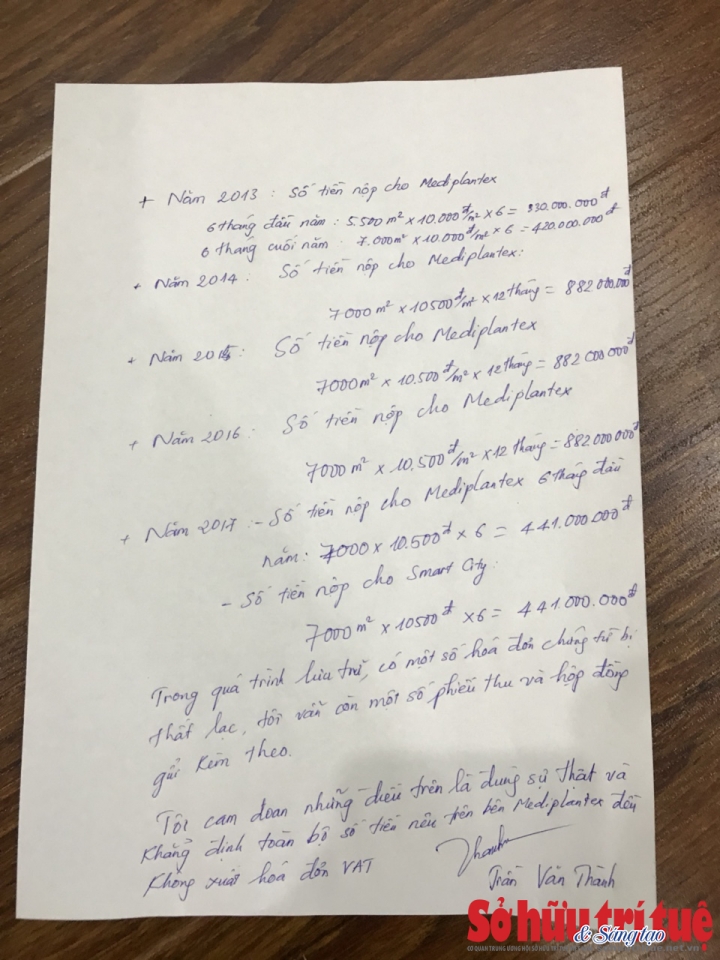 + Năm 2013 : Số tiền nộp cho Mediplantex
6 tháng đầu năm : 5.500 m² x 10.000 đ/m² x 6 = 330.000.000 đ
6 tháng cuối năm : 7.000m² x 10.000 đ/m² x 6 = 420.000.000 đ
+ Năm 2014 : Số tiền nộp cho Mediplantex:
7000m² x 10500 đ/m² x 12 tháng = 882 000.000 đ
+ Năm 2015: Số tiền nộp cho Mediplantex
7000m² x 10.500 đ/m² x 12 tháng = 882 000 000 đ
+ Năm 2016 : Số tiền nộp cho Mediplantex
7000m² x 10.500 đ/m² x 12 tháng = 882 000 000 đ
+ Năm 2017 : - Số tiền nộp cho Mediplantex 6 tháng đầu
năm: 7000 x 10.500 đ x 6 = 441.000.000 đ
- Số tiền nộp cho Smart City:
7000m² x 10500 đ x 6 = 441.000.000 đ
Trong quá trình lưu trữ, có một số hoá đơn chứng từ bị
thất lạc, tôi vẫn còn một số phiếu thu và hợp đồng
gửi kèm theo.
Tôi cam đoan những điều trên là đúng sự thật và
khẳng định toàn bộ số tiền nêu trên bên Mediplantex đều
không xuất hoá đơn VAT
Thanh
Trần Văn Thành
Sở hữu trí tuệ
& Sáng tạo